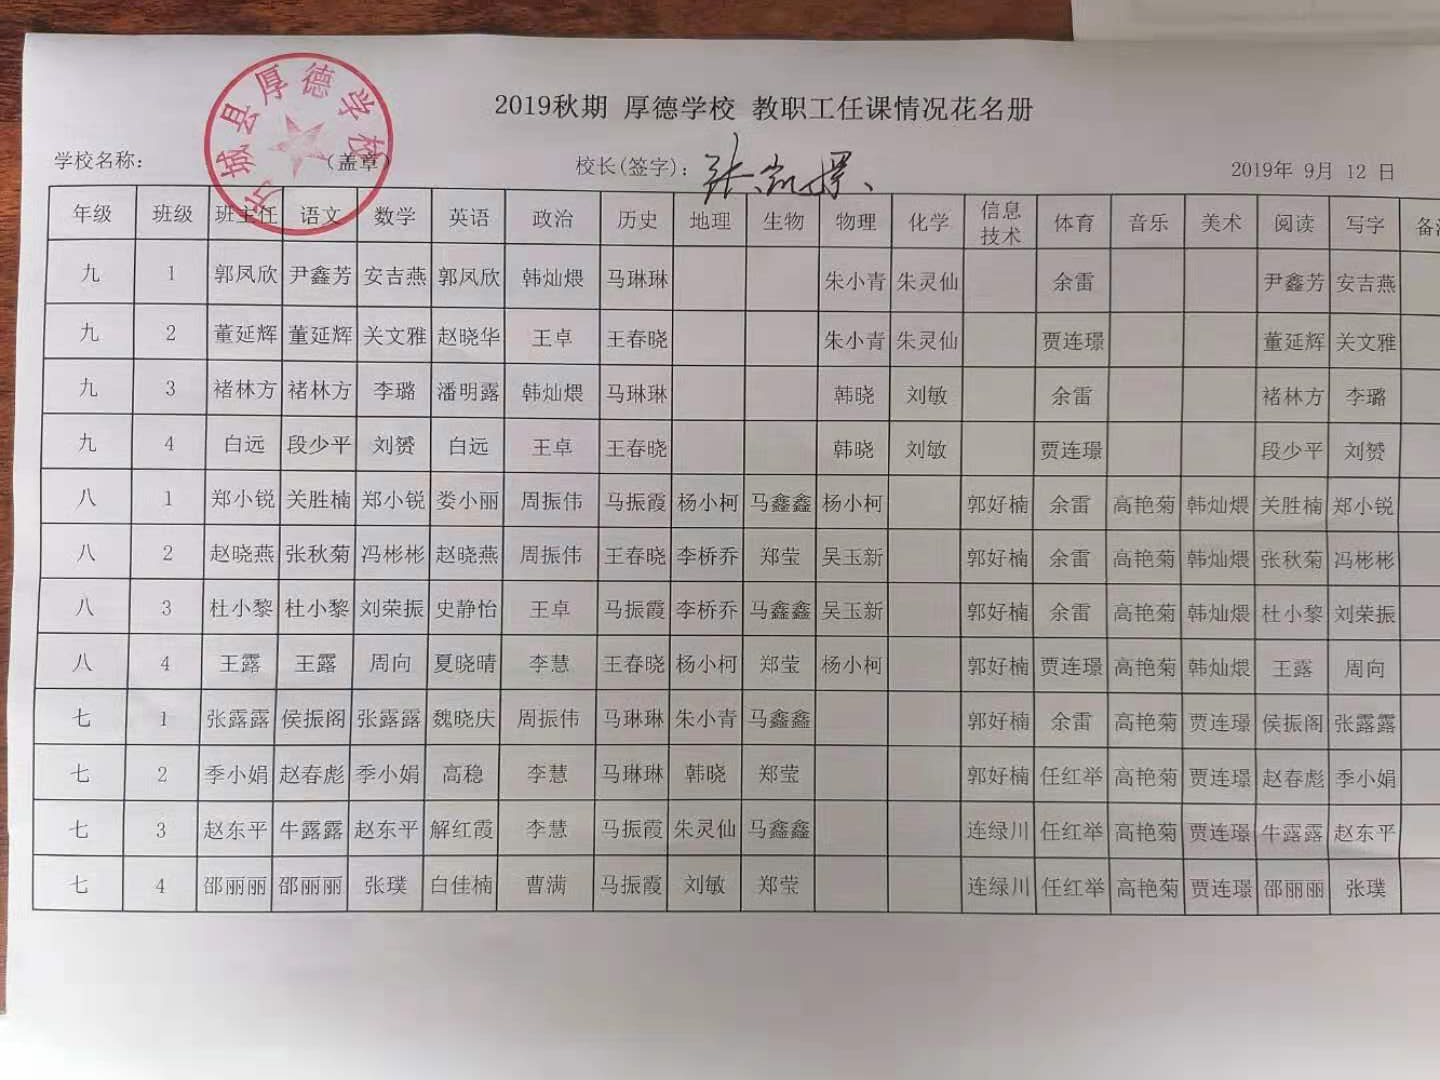 方城县厚德学校
2019秋期 厚德学校 教职工任课情况花名册
学校名称： （盖章） 校长(签字)： 2019年 9月 12 日
年级 班级 班主任 语文 数学 英语 政治 历史 地理 生物 物理 化学 信息技术 体育 音乐 美术 阅读 写字
九 1 郭凤欣 尹鑫芳 安吉燕 郭凤欣 韩灿煨 马琳琳 朱小青 朱灵仙 余雷 尹鑫芳 安吉燕
九 2 董延辉 董延辉 关文雅 赵晓华 王卓 王春晓 朱小青 朱灵仙 贾连璟 董延辉 关文雅
九 3 褚林方 褚林方 李璐 潘明露 韩灿煨 马琳琳 韩晓 刘敏 余雷 褚林方 李璐
九 4 白远 段少平 刘赟 白远 王卓 王春晓 韩晓 刘敏 贾连璟 段少平 刘赟
八 1 郑小锐 关胜楠 郑小锐 娄小丽 周振伟 马振霞 杨小柯 马鑫鑫 杨小柯 郭好楠 余雷 高艳菊 韩灿煨 关胜楠 郑小锐
八 2 赵晓燕 张秋菊 冯彬彬 赵晓燕 周振伟 王春晓 李桥乔 郑莹 吴玉新 郭好楠 余雷 高艳菊 韩灿煨 张秋菊 冯彬彬
八 3 杜小黎 杜小黎 刘荣振 史静怡 王卓 马振霞 李桥乔 马鑫鑫 吴玉新 郭好楠 余雷 高艳菊 韩灿煨 杜小黎 刘荣振
八 4 王露 王露 周向 夏晓晴 李慧 王春晓 杨小柯 郑莹 杨小柯 郭好楠 贾连璟 高艳菊 韩灿煨 王露 周向
七 1 张露露 侯振阁 张露露 魏晓庆 周振伟 马琳琳 朱小青 马鑫鑫 郭好楠 余雷 高艳菊 贾连璟 侯振阁 张露露
七 2 季小娟 赵春彪 季小娟 高稳 李慧 马琳琳 韩晓 郑莹 郭好楠 任红举 高艳菊 贾连璟 赵春彪 季小娟
七 3 赵东平 牛露露 赵东平 解红霞 李慧 马振霞 朱灵仙 马鑫鑫 连绿川 任红举 高艳菊 贾连璟 牛露露 赵东平
七 4 邵丽丽 邵丽丽 张璞 白佳楠 曹满 马振霞 刘敏 郑莹 连绿川 任红举 高艳菊 贾连璟 邵丽丽 张璞